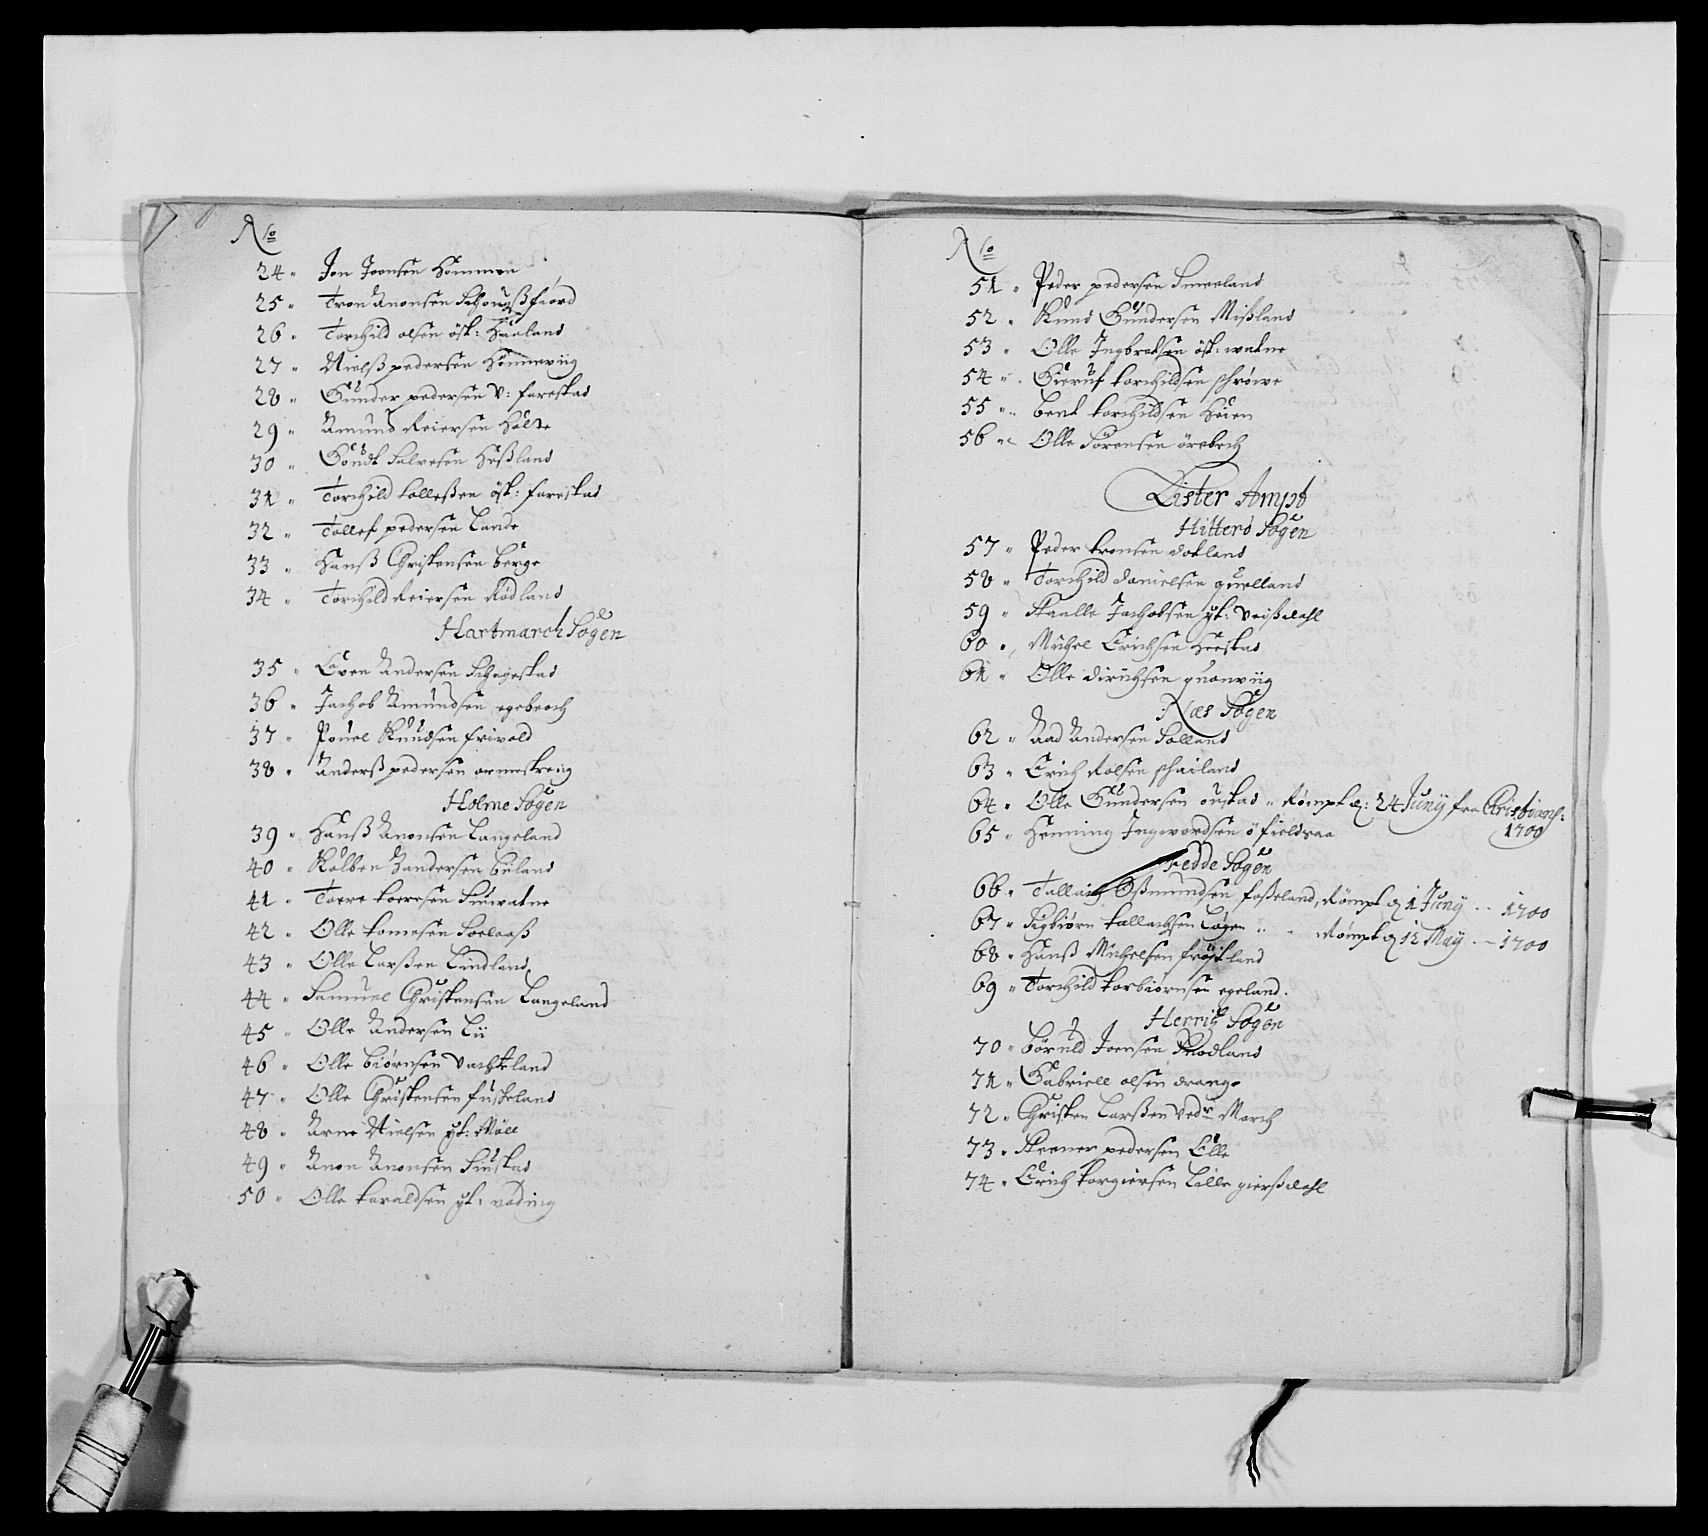 No
24 " Jon Joensen Hommen
25 " Tron Anonsen Schougßfiord
26 " Torchild olsen öst: Haaland
27 " Nielß pedersen Hönneviig
28 " Gunder pedersen V: farestad
29 " Amund Reiersen Holte
30 " Goudt Salvesen Heßland
31 " Torchild tolleßen öst: farestad
32 " Tollef pedersen Lande
33 " Hanß Christensen berge
34 " Torchild Reiersen Rödland
Hartmarch Sogen
35 " Even Andersen Schagestad
36 " Jachob Amundsen egebroch
37 " Pouel Knudsen frivold
38 " Anderß pedersen ormestreng
Holme Sogen
39 " Hanß Anonsen Langeland
40 " Kolben Gandersen buland
41 " Toere toersen Diuvatne
42 " Olle tomesen Solaaß
43 " Olle Larßen Lindland
44 " Samuel Christensen Langeland
45 " Olle Andersen Lii
46 " Olle biørnsen Vachteland
47 " Olle Christensen fuskeland
48 " Arne Nielsen yt: Møll
49 " Anon Anonsen Diustad
50 " Olle taraldsen yt: voding
No
51 " Peder pedersen Smeeland
52 " Knud Gundersen Mißland
53 " Olle Ingbretsen öst: watne
54 " Gieruf torchildsen schrowe
55 " bent torchildsen Heien
56 " Olle Sörensen örebech
Lister Ampt
Hitterö Sogen
57 " Peder tronsen dotland
58 " Torchild danielsen quelland
59 " Staalle Jachobsen yt: Veißdahl
60 " Michel Erichsen Heestad
61 " Olle dirichsen quanviig
Næs Sogen
62 " Aad Andersen Solland
63 " Erich Rolsen schailand
64 " Olle Gundersen oustad " Römpt d: 24 Junÿ fra Christians:
1700
65 " Henning Ingvordsen ö fieldsaa
Fedde Sogen
66 " Tallaig Oßmundsen foßeland, Römpt d 1 Junÿ -- 1700
67 " Sigbiörn tallachsen Lögen " " Römpt d 12 Maÿ -- 1700
68 " Hanß Michelsen fröistland
69 " Torchild torbiörnsen egeland.
Herrits Sogen
70 " böruld Joensen Rodland
71 " Gabriell olsen drange
72 " Christen Larßen Vedr March
73 " Steener pedersen Elle
74 " Erich torgiersen Lille gierßdahl